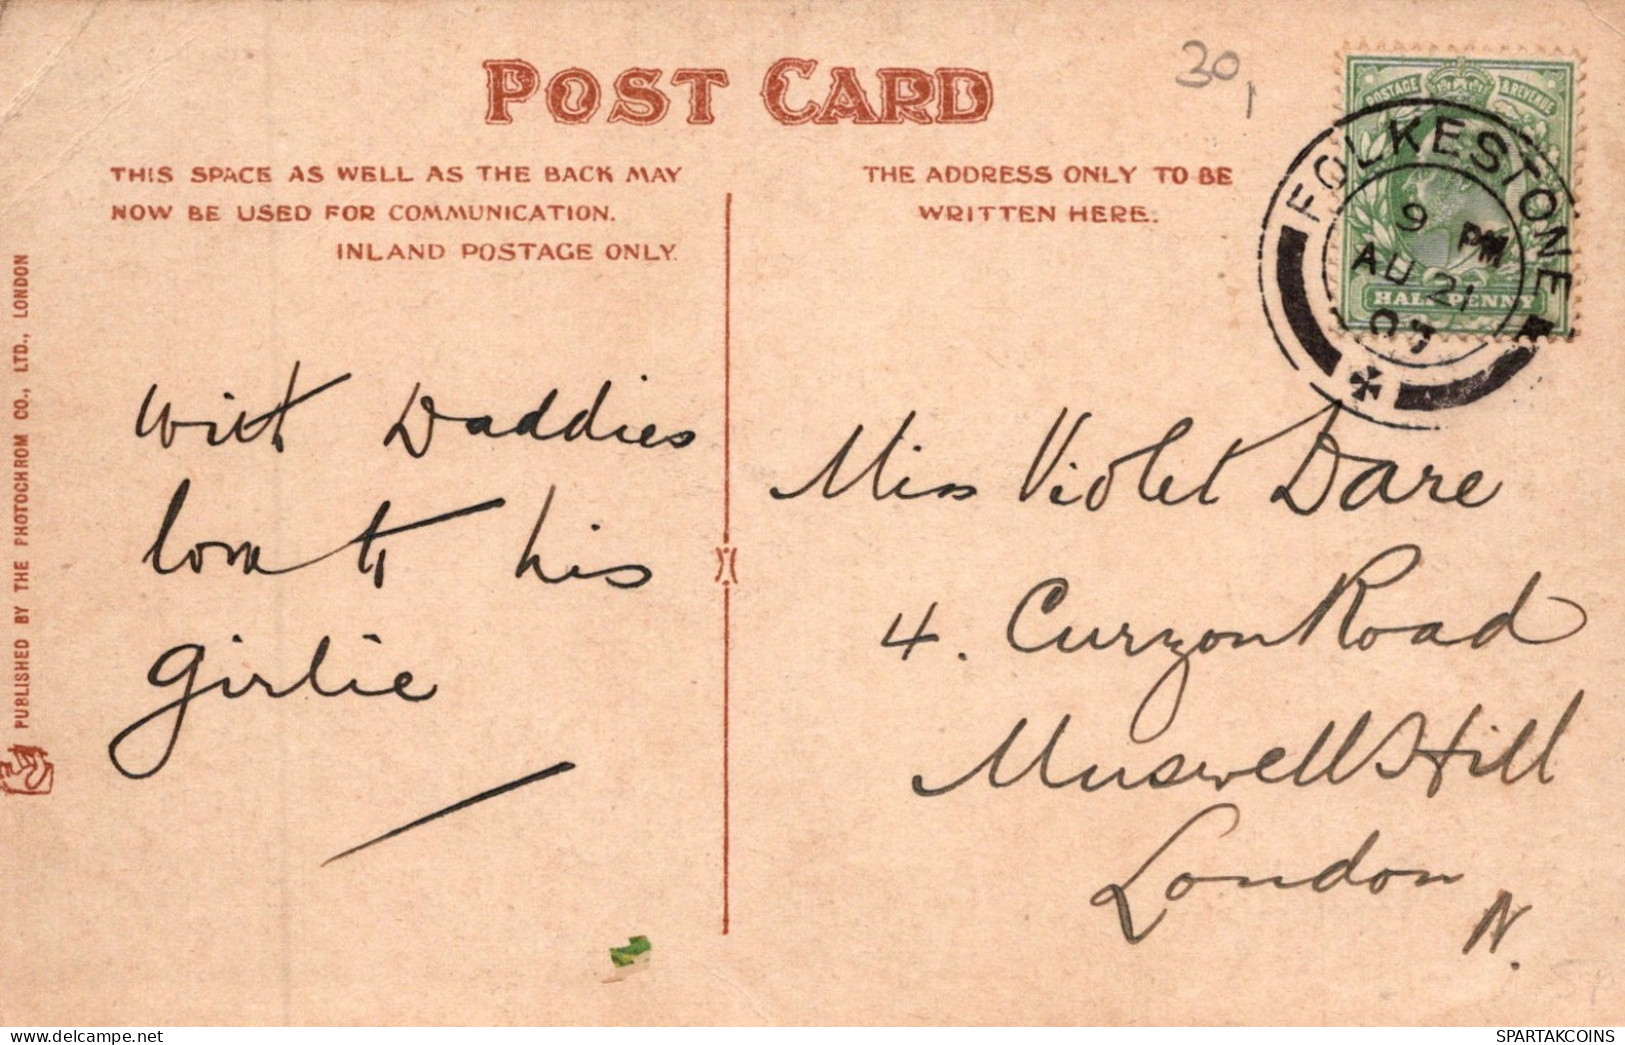 POST CARD
30,
POSTAGE & REVENUE
FOLKESTONE
9 PM
AU 21
07
HALF PENNY
THIS SPACE AS WELL AS THE BACK MAY
NOW BE USED FOR COMMUNICATION.
INLAND POSTAGE ONLY.
THE ADDRESS ONLY TO BE
WRITTEN HERE.
PUBLISHED BY THE PHOTOCHROM CO., LTD., LONDON
With Daddies
love to his
girlie
Miss Violet Dare
4. Curzon Road
Muswell Hill
London
N.
SPARTAKCOINS